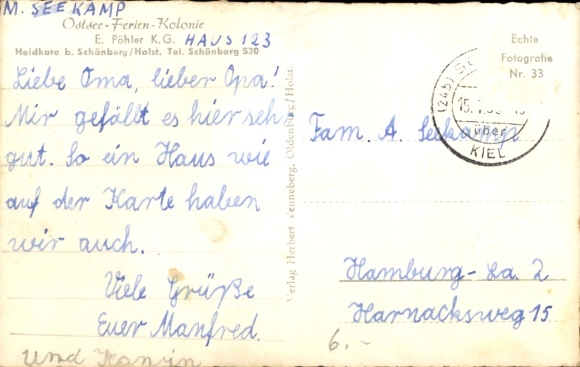 M. SEEKAMP
Ostsee-Ferien-Kolonie
E. Pöhler K.G. HAUS 123
Heidkate b. Schönberg/Holst. Tel. Schönberg 530
Liebe Oma, lieber Opa!
Mir gefällt es hier sehr
gut. So ein Haus wie
auf der Karte haben
wir auch.
Viele Grüße
Euer Manfred.
Und Karin
Verlag Herbert Venneberg, Oldenburg/Holst.
Echte
Fotografie
Nr. 33
(24b)
15.
über
KIEL
Fam. A. Seekamp
Hamburg-La. 2
Harnacksweg 15
6.-